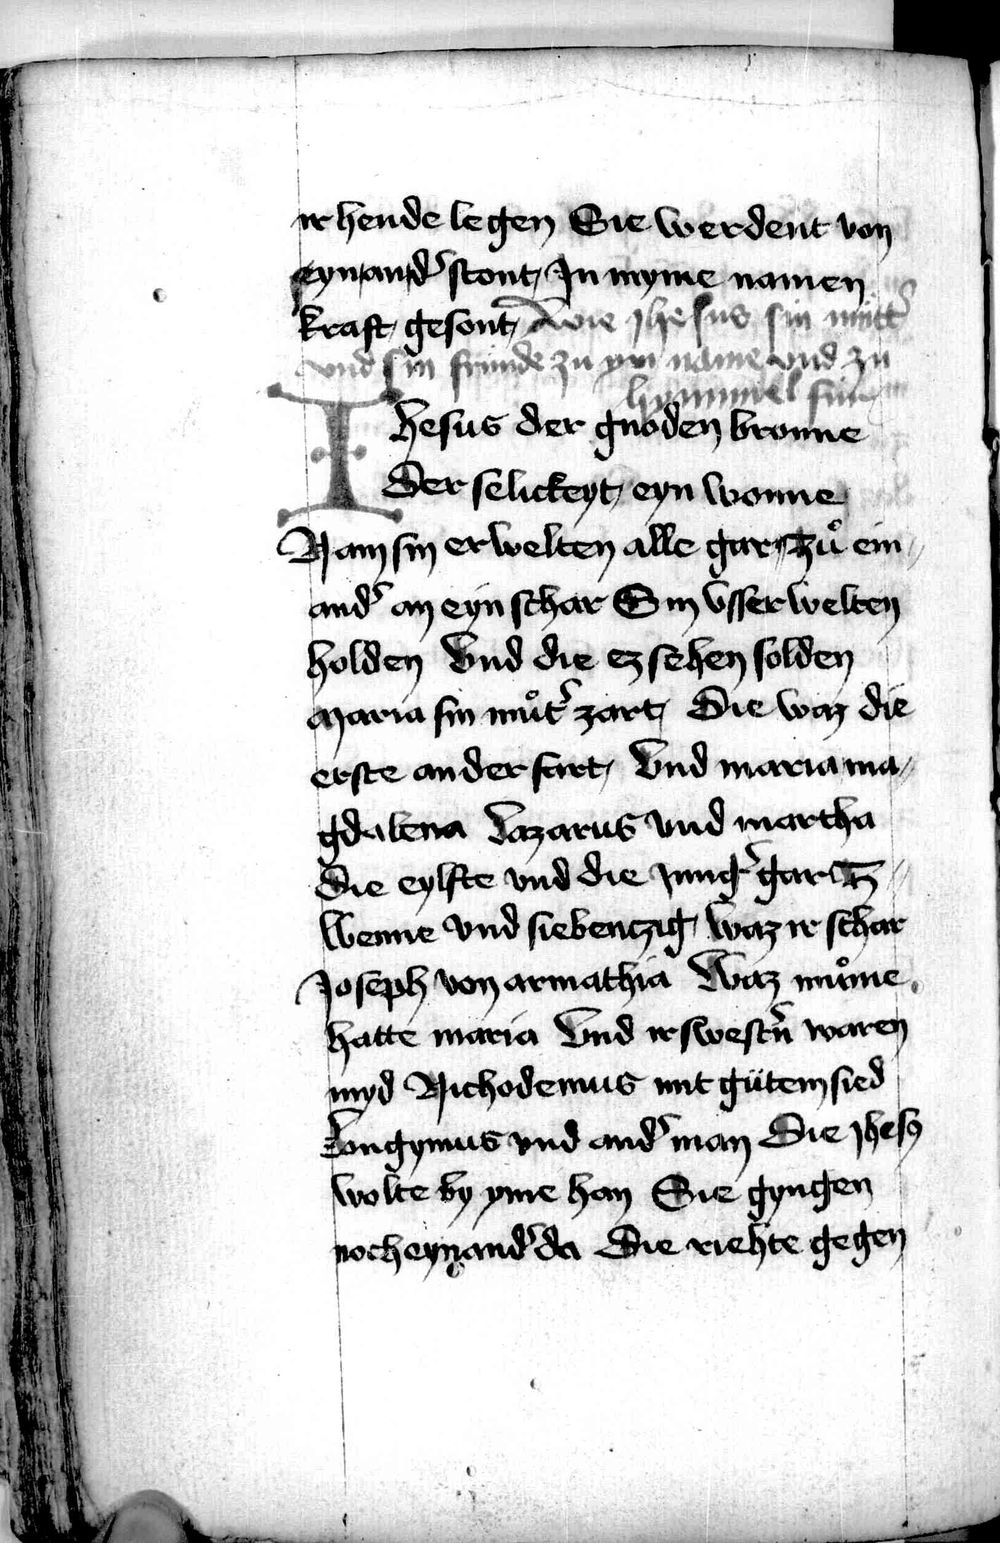 ir hende legen Sie werdent von
eynandˢ stont In myme namen
kraft gesont Wie Jhesus sin muttˢ
vnd sin frunde zu ym name vnd zu
hymmel fur
Ihesus der gnoden bronne
Der selickeyt eyn wonne
Nam sin erwelten alle gar Zuͦ ein
andˢ an eyn schar Sin vsserwelten
holden Vnd die ez sehen solden
Maria sin muͦtˢ zart Die waz die
erste an der fart Vnd maria ma
gdalena Lazarus vnd martha
Die eylfte vnd die Jungˢ gar
Wenne vnd siebenczig waz ir schar
Joseph von armathia Waz muͦme
hatte maria Vnd ir swestn̄ waren
myd Nichodemus mit gütem sied
Longynus vnd andˢ man Die Jhesꝰ
wolte by yme han Sie gyngen
noch eynandˢ da Die riehte gegen